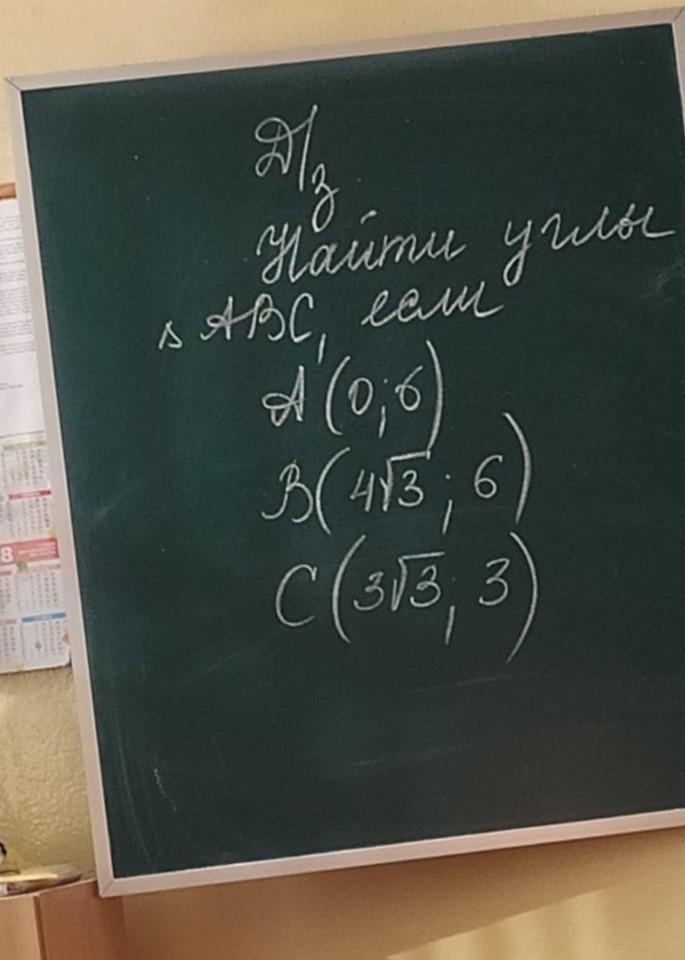 Д/з
Найти углы
△ ABC, если
A(0;6)
B(4√3; 6)
C(3√3; 3)
8